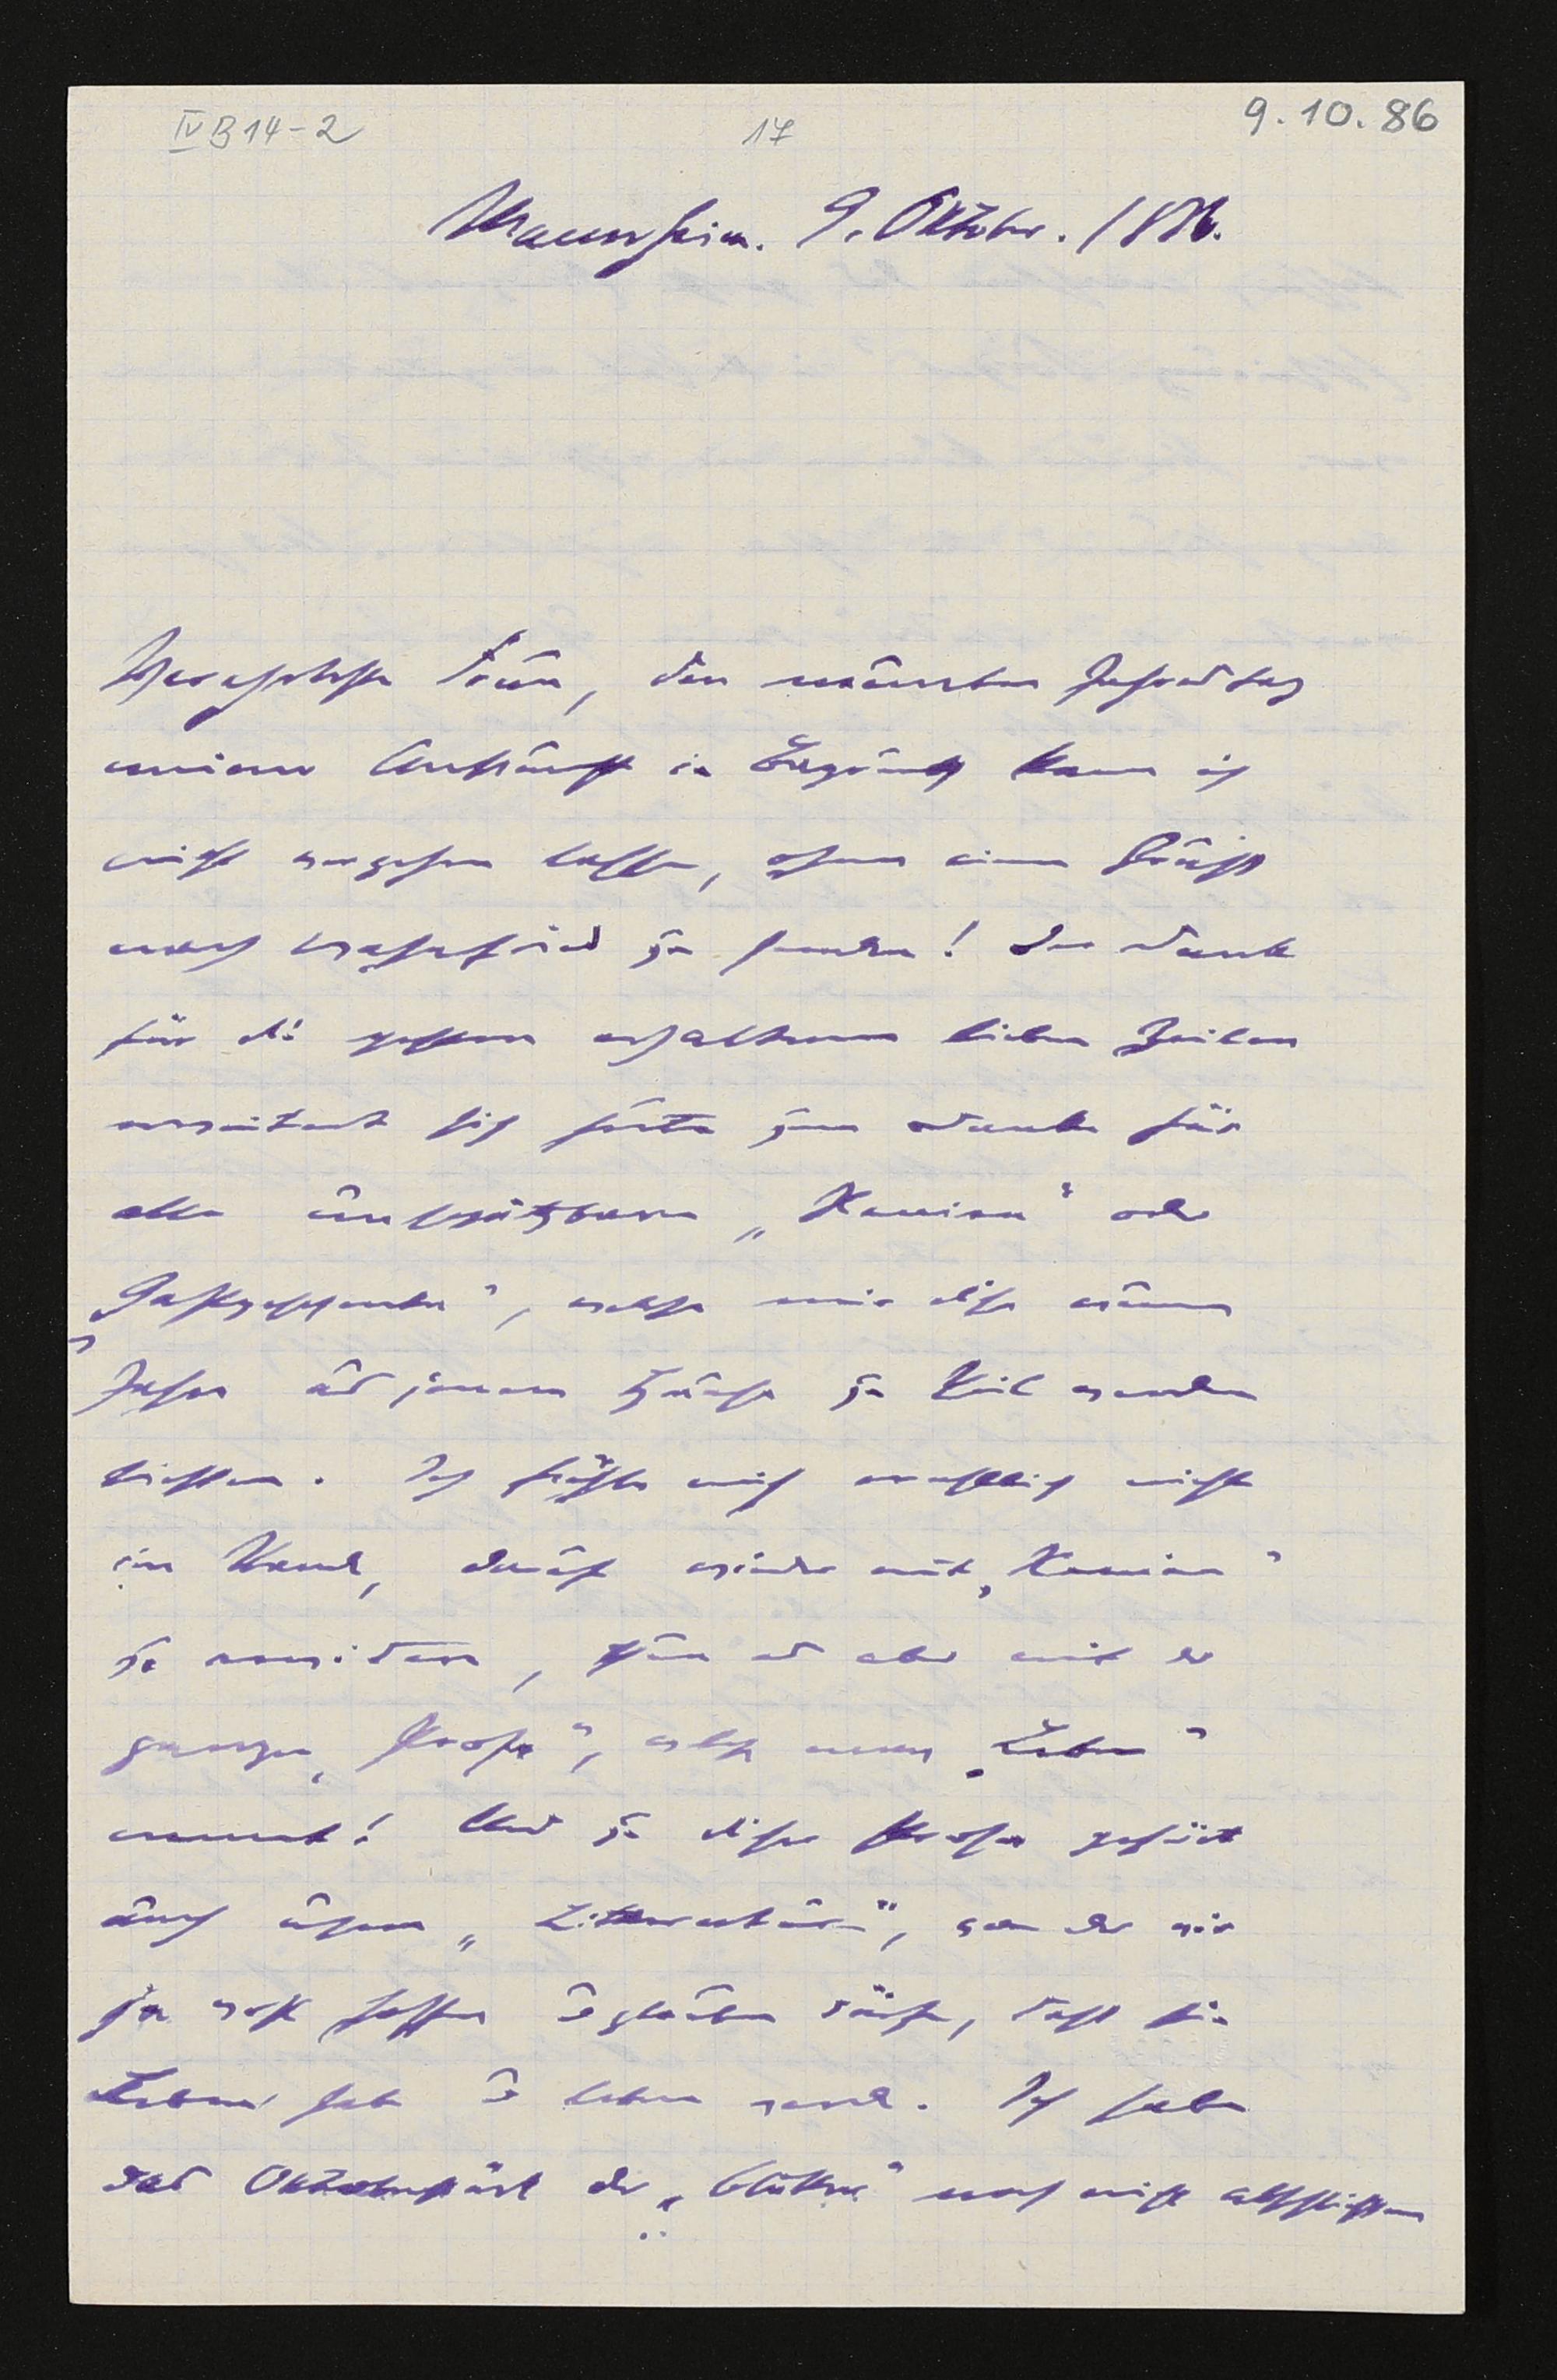 IV B 14-2 17 9.10.86
Mannheim. 9. Oktober. 1886.
Verehrteste Frau, den neunten Jahrestag
meiner Ankunft in Bayreuth kann ich
nicht vergehen lassen, ohne einen Gruss
nach Wahnfried zu senden! Der Dank
für die gestern erhaltenen lieben Zeilen
erweitert sich heute zum Danke für
alle unschätzbaren „Xenien“ oder
„Gastgeschenke“, welche mir diese neun
Jahre aus jenem Hause zu Teil werden
liessen. Ich fühle mich nicht
im Stand, darauf wieder mit „Xenien“
zu erwidern, thue es aber mit der
ganzen „Prosa“, welche man „Leben“
nennt! Und zu dieser Prosa gehört
auch unsere „Litteratur“, von der wir
ja wohl hoffen u glauben dürfen, dass sie
Leben habe u leben werde. Ich habe
das Oktoberstück der „Blätter“ noch nicht abschliessen